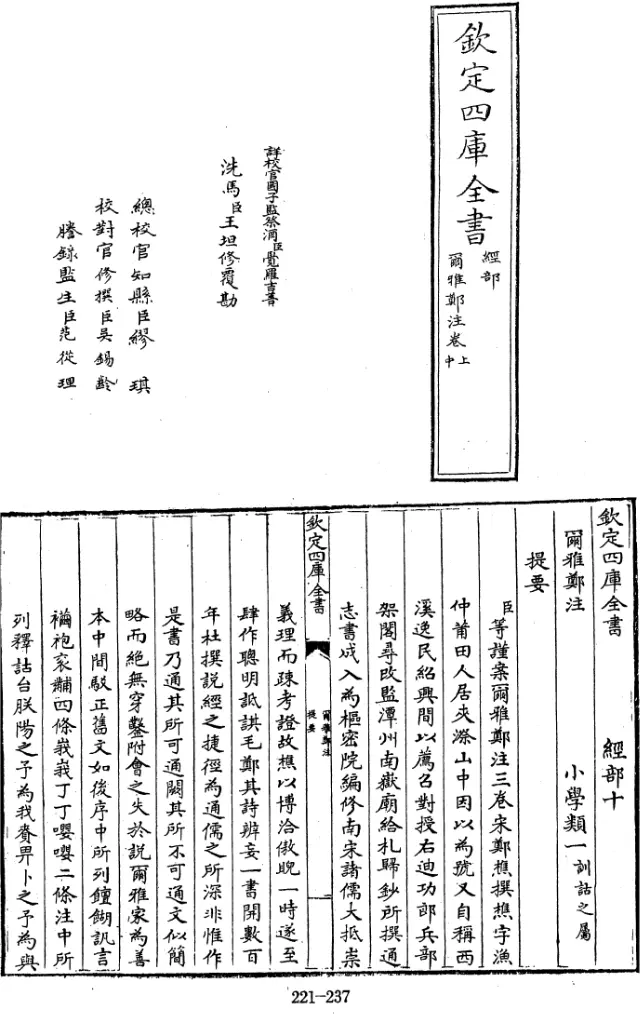 欽定四庫全書
經部
爾雅鄭注卷上中
詳校官國子監祭酒臣覺羅吉善
洗馬臣王坦修覆勘
總校官知縣臣繆琪
校對官修撰臣吳錫齡
謄錄監生臣范從理
欽定四庫全書 經部十
爾雅鄭注 小學類一訓詁之屬
提要
臣等謹案爾雅鄭注三卷宋鄭樵撰樵字漁
仲莆田人居夾漈山中因以為號又自稱西
溪逸民紹興間以薦召對授右迪功郎兵部
架閣尋改監潭州南嶽廟給札歸鈔所撰通
志書成入為樞密院編修南宋諸儒大抵崇
欽定四庫全書 爾雅鄭注 提要
義理而疎考證故樵以博洽傲睨一時遂至
肆作聰明詆諆毛鄭其詩辨妄一書開數百
年杜撰說經之捷徑為通儒之所深非惟作
是書乃通其所可通闕其所不可通文似簡
略而絶無穿鑿附會之失於說爾雅家為善
本中間駁正舊文如後序中所列饘餬訊言
襺袍袞黼四條峩峩丁丁嚶嚶二條注中所
列釋詁台朕陽之予為我賚畀卜之予為與
221-237